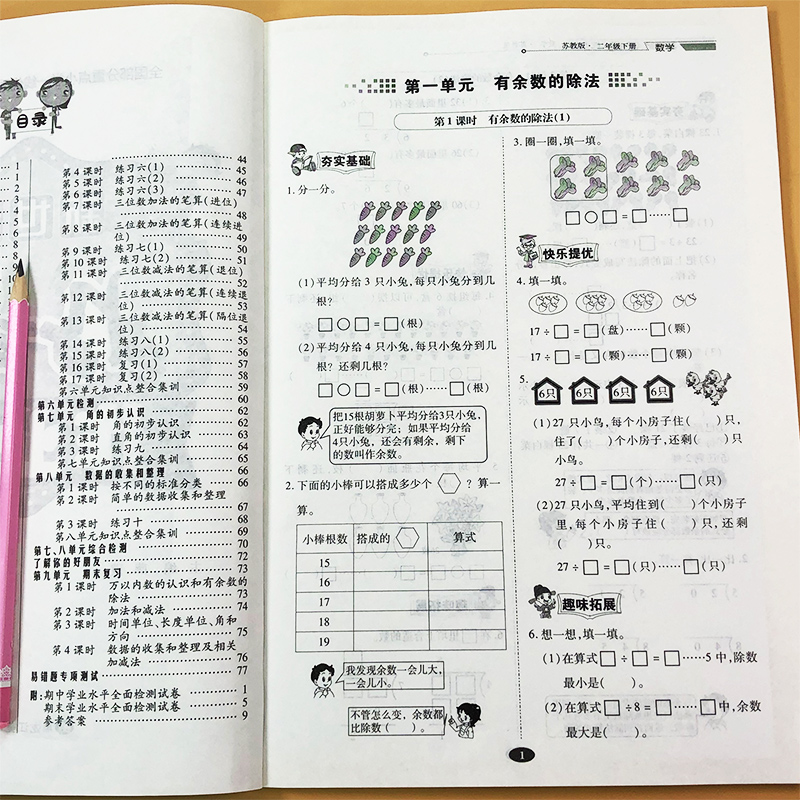 目录
44
第4课时 练习六(1) 45
第5课时 练习六(2) 46
第6课时 练习六(3) 47
第7课时 三位数加法的笔算(进位)
48
第8课时 三位数加法的笔算(连续进
位) 49
第9课时 练习七(1) 50
第10课时 练习七(2) 51
第11课时 三位数减法的笔算(退位)
52
第12课时 三位数减法的笔算(连续退
位) 53
第13课时 三位数减法的笔算(隔位退
位) 54
第14课时 练习八(1) 55
第15课时 练习八(2) 56
第16课时 复习(1) 57
第17课时 复习(2) 58
第六单元知识点整合集训 59
第六单元检测 60
第七单元 角的初步认识 62
第1课时 角的初步认识 62
第2课时 直角的初步认识 63
第3课时 练习九 64
第七单元知识点整合集训 65
第八单元 数据的收集和整理 66
第1课时 按不同的标准分类 66
第2课时 简单的数据收集和整理
67
第3课时 练习十 68
第八单元知识点整合集训 69
第七、八单元综合检测 70
了解你的好朋友 72
第九单元 期末复习 73
第1课时 万以内数的认识和有余数的
除法 73
第2课时 加法和减法 74
第3课时 时间单位、长度单位、角和
方向 75
第4课时 数据的收集和整理及相关
加减法 76
易错题专项测试 77
附:期中学业水平全面检测试卷 1
期末学业水平全面检测试卷 5
参考答案 9
苏教版·二年级下册 数学
第一单元 有余数的除法
第1课时 有余数的除法(1)
夯实基础
1.分一分。
(1)平均分给3只小兔,每只小兔分到几
根?
□○□=□(根)
(2)平均分给4只小兔,每只小兔分到几
根?还剩几根?
□○□=□(根)……□(根)
把15根胡萝卜平均分给3只小兔,
正好能够分完;如果平均分给
4只小兔,还会有剩余,剩下
的数叫作余数。
2.下面的小棒可以搭成多少个 ?算一
算。
小棒根数 搭成的 算式
15
16
17
18
19
我发现余数一会儿大,
一会儿小。
不管怎么变,余数都
比除数( )。
3.圈一圈,填一填。
□○□=□……□
快乐提优
4.填一填。
17÷□=□(盘)……□(颗)
17÷□=□(颗)……□(颗)
5.
6只 6只 6只 6只
(1)27只小鸟,每个小房子住( )只,
住了( )个小房子,还剩( )只
小鸟。
27÷□=□(个)……□(只)
(2)27只小鸟,平均住到( )个小房子
里,每个小房子住( )只,还剩
( )只。
27÷□=□(只)……□(只)
趣味拓展
6.想一想,填一填。
(1)在算式□÷□=□……5中,除数
最小是( )。
(2)在算式□÷8=□……□中,余数
最大是( )。
1